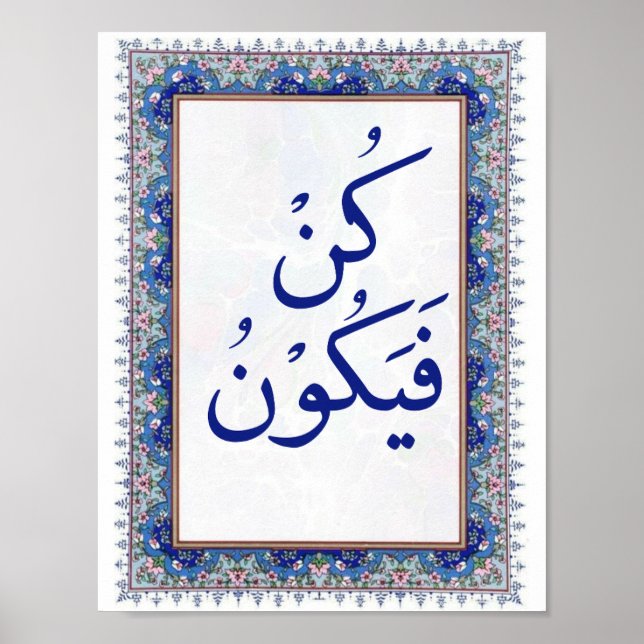 كُنْ
فَيَكُوْنُ